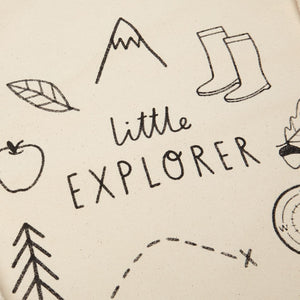 little
EXPLORER
W